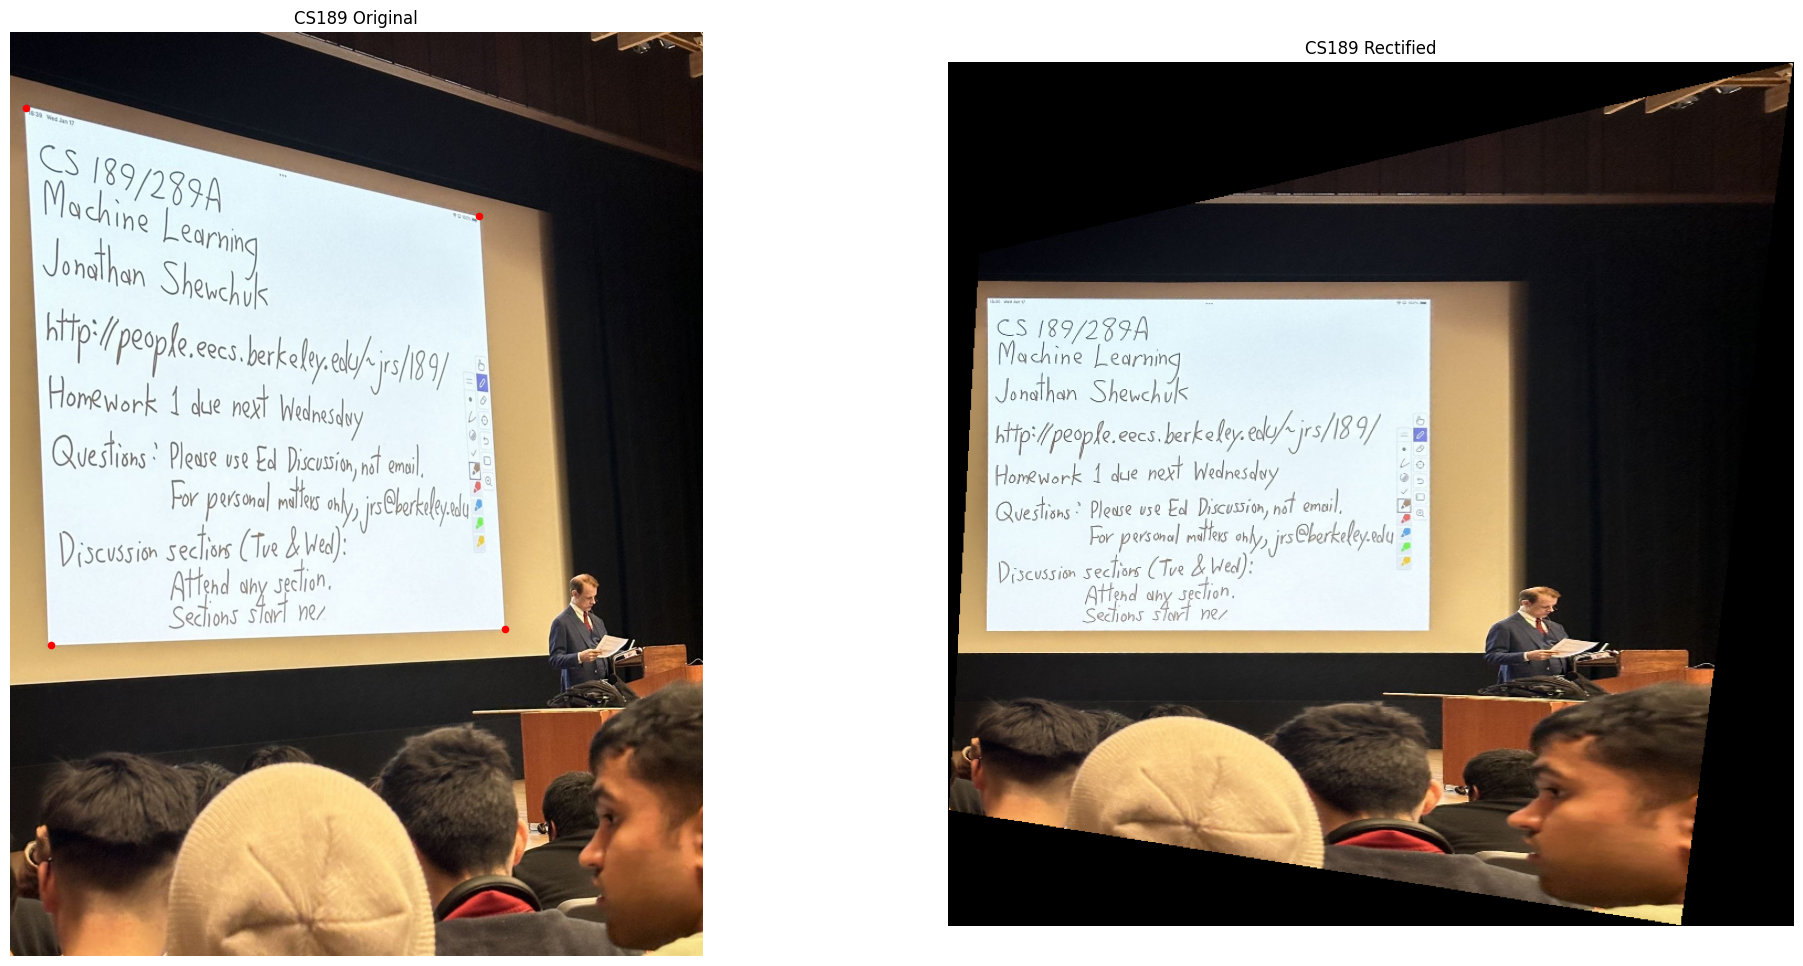 CS189 Original
16:39 Wed Jan 17
CS 189/289A
Machine Learning
Jonathan Shewchuk
http://people.eecs.berkeley.edu/~jrs/189/
Homework 1 due next Wednesday
Questions: Please use Ed Discussion, not email.
For personal matters only, jrs@berkeley.edu
Discussion sections (Tue & Wed):
Attend any section.
Sections start ne
CS189 Rectified
Wed Jan 17
CS 189/289A
Machine Learning
Jonathan Shewchuk
http://people.eecs.berkeley.edu/~jrs/189/
Homework 1 due next Wednesday
Questions: Please use Ed Discussion, not email.
For personal matters only, jrs@berkeley.edu
Discussion sections (Tue & Wed):
Attend any section.
Sections start ne